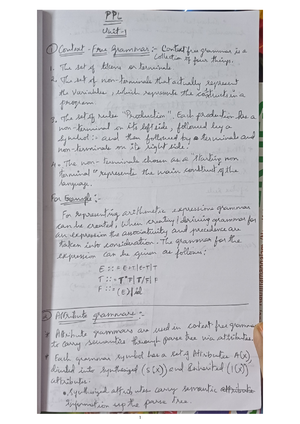 PPL
Unit-1
① Context-Free Grammar:- Context free grammar is a
collection of four things.
1. The set of tokens or terminals
2. The set of non-terminals that actually represent
the variables, which represents the constructs in a
program
3. The set of rules "Production". Each production has a
non-terminal on its left side, followed by a
symbol ::= and then followed by terminals and
non-terminals on its right side.
4. The non-terminals chosen as a "Starting non
terminal" represents the main construct of the
language.
For Example:-
For representing arithmetic expressions grammar
can be created, when creating / deriving grammar for
an expression the associativity and precedence are
taken into consideration. The grammar for the
expression can be given as follows:
E ::= E+T|E-T|T
T ::= T*F|T/F|F
F ::= (E)|id
② Attribute grammars:-
* Attribute grammars are used in context free grammar
to carry semantics through parse tree via attributes.
* Each grammar symbol has a set of Attributes A(X)
divided into synthesized (S(X)) and Inherited (I(X))
attributes.
• Synthesized attributes carry semantic
information up the parse tree.